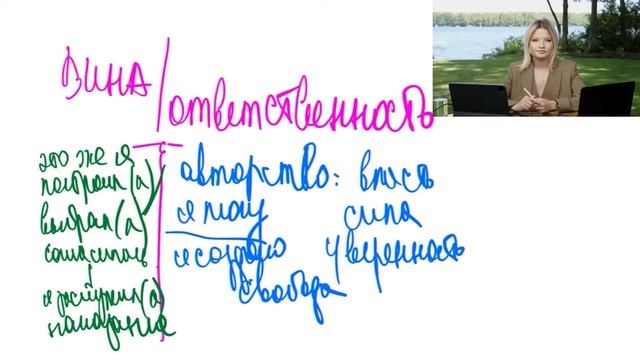 вина / ответственность
это же я
построил(а)
выбрал(а)
согласилась
я заслужил(а)
наказание
авторство: власть
я могу сила
я создаю уверенность
свобода